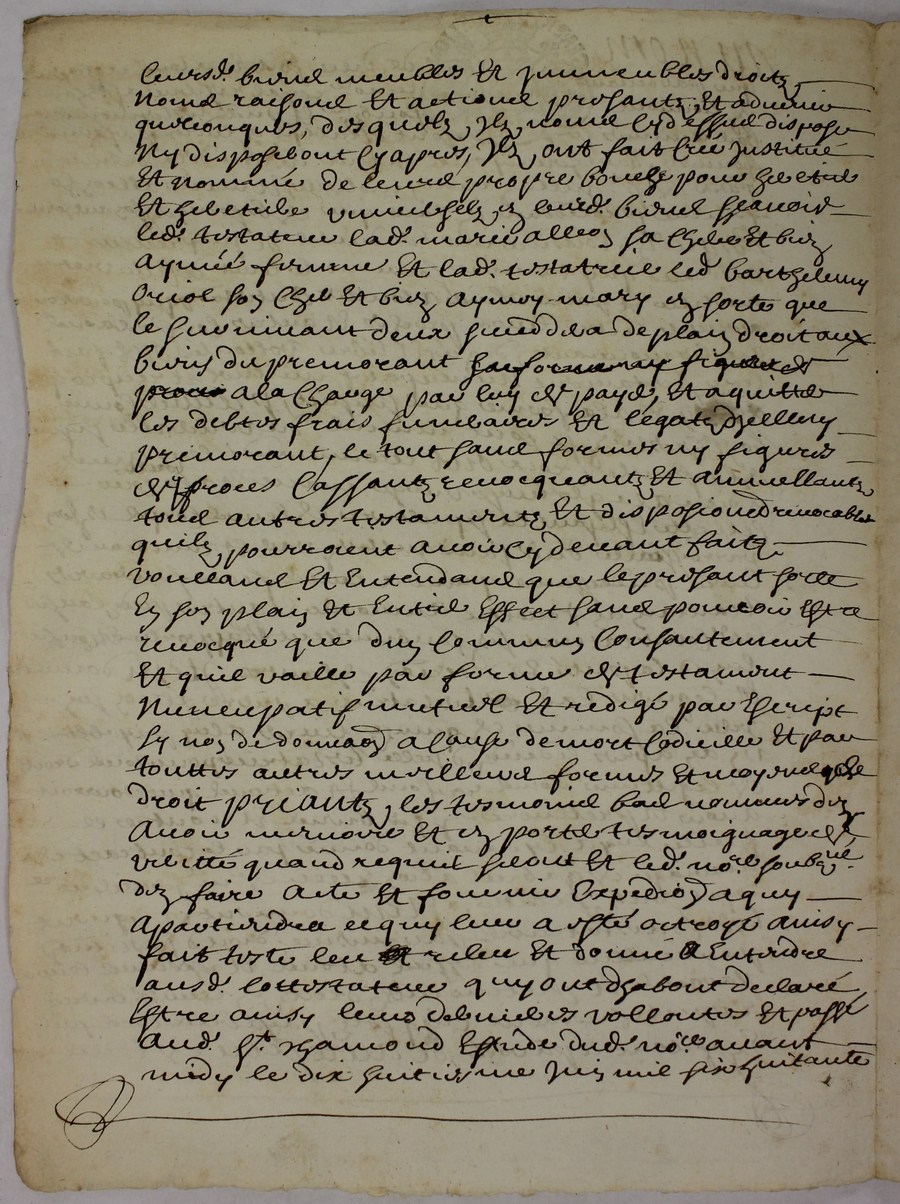 leursd. biens meubles et immeubles droitz
noms raisons et actions presantz, et advenir
quelconques, desquelz, ilz, nont cy dessus dispozé
ny disposeront cy apres, ilz, ont fait creé institué
et nommé de leurs propre bouche pour heretier
et heretiere universelz, en leursd. biens scavoir
led. testateur lad. marie alleon sa chere et bien
aymée femme et lad. testatrice led barthelemy
oriol son cher et bien aymé mary en sorte que
le survivant deux succedera de plain droit aux
biens du premorant
proces a la charge par luy de payer, et aquitter
les debtes frais funeraires et legatz, dicelluy
premorant, le tout sans formes ny figures
de proces cassantz, revocquantz, et annullantz,
tous autres testamentz, et disposions revocables
quilz, pourroient avoir cy devant faitz
voullans et entendans que le presant sorte
en son plain et entier effect sans pouvoir estre
revocqué que dun commun consantement
et quil vaille par forme de testament
nuncupatif mutuel et redigé par escript
sy non de donnaon a cause de mort codicille et par
touttes autres meilleurs formes et moyens que de
droit priantz, les tesmoins bas nommés den
avoir memoire et en porter tesmoignage de
verité quand requis seront et led. nore. soubzne.
den faire acte et fournir expedion a quy
apartiendra ce quy leur a esté octroyé ainsy
fait leu releu et donné a entendre
ausd. testateurs quy ont dhabont declaré
estre ainsy leurs dernieres vollontes et passé
aud. st. chamond estude dud. nore. avant
midy le dix huitiesme juin mil six huitante